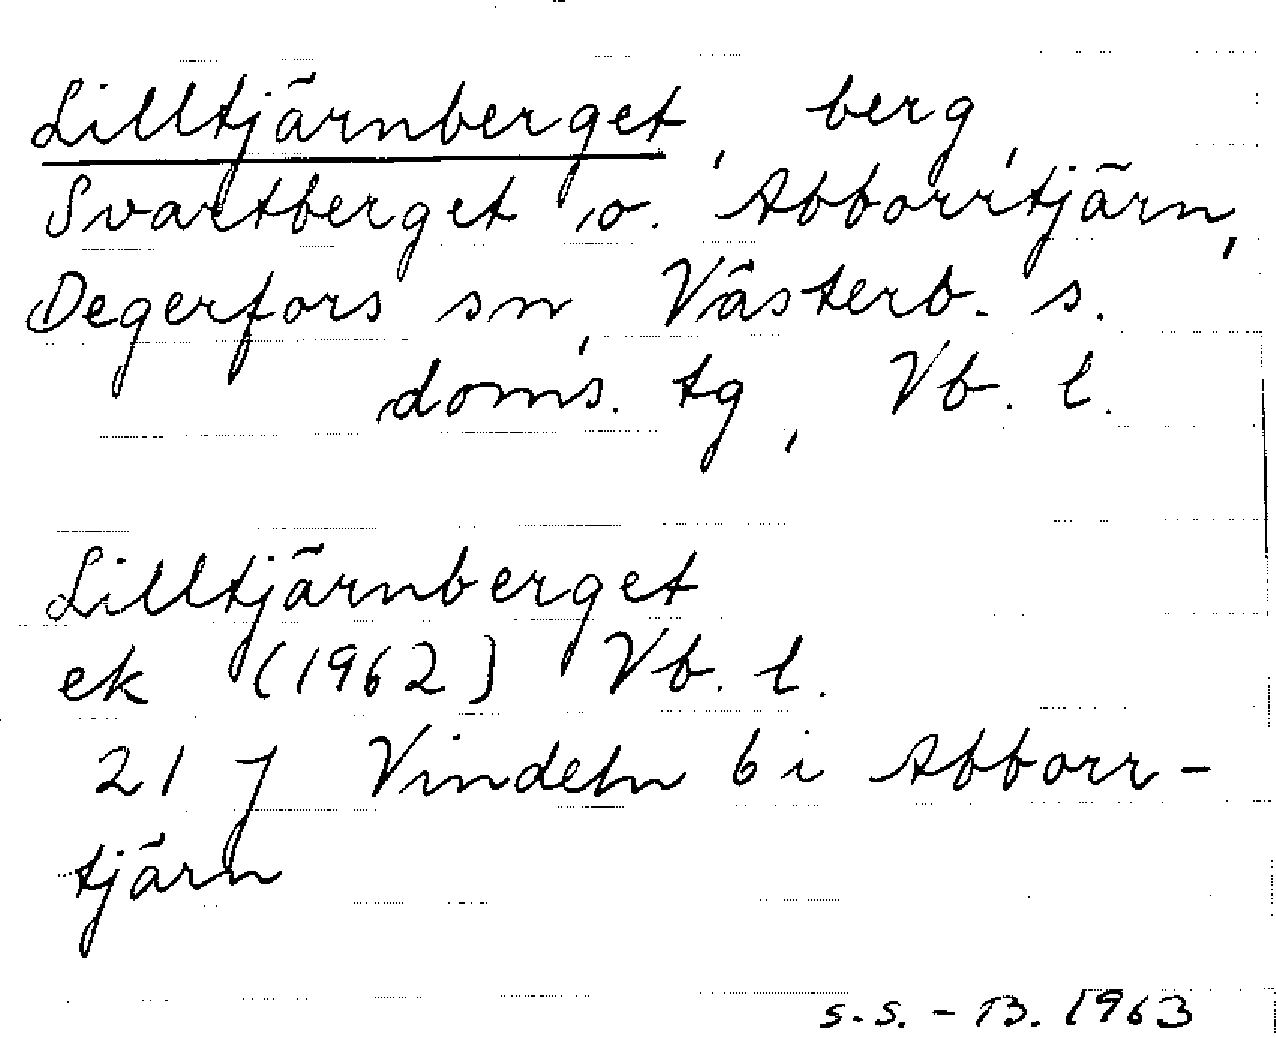 Lilltjärnberget, berg,
Svartberget o. Abborrtjärn,
Degerfors sn, Västerb. s.
doms. tg, Vb. l.
Lilltjärnberget
ek (1962) Vb. l.
21 J Vindeln bi Abborr-
tjärn
s.s. - B. 1963